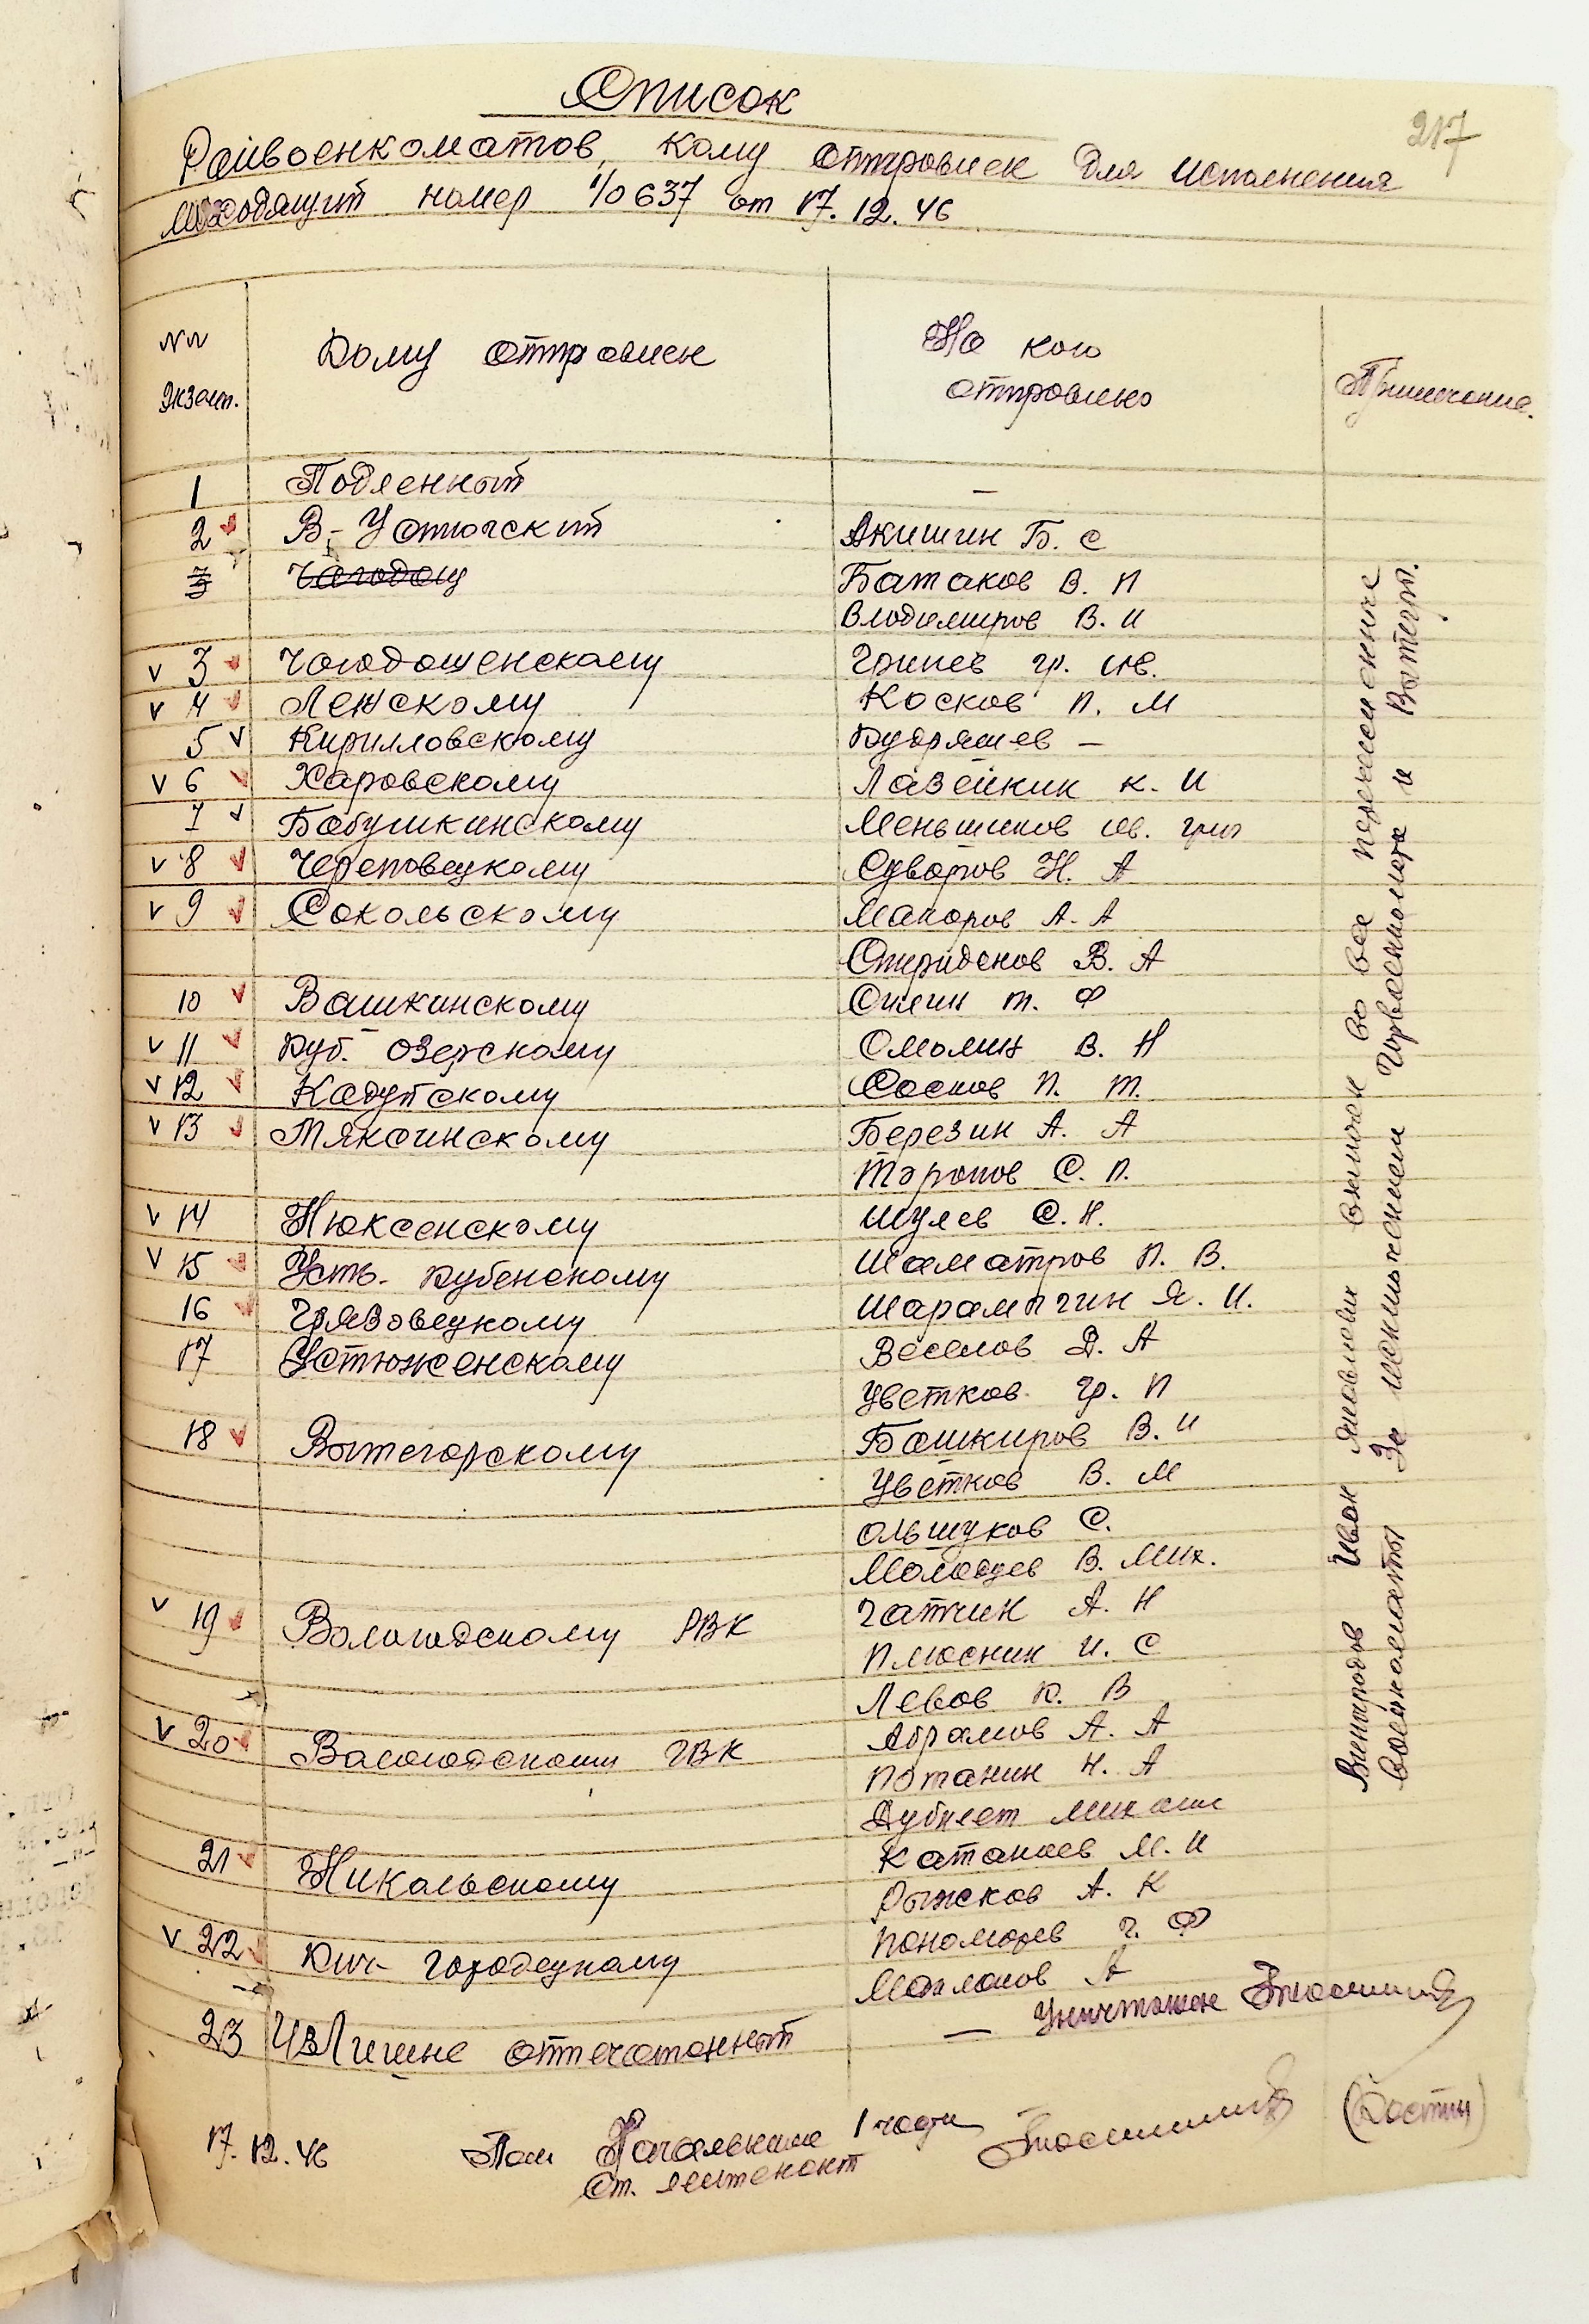 Список
217
Райвоенкоматов, кому отправлен для исполнения
исходящий номер 1/0637 от 17.12.46
№№ экземп.
Кому отправлен
На кого отправлено
Примечание.
1 Подленный —
2 В-Устюгский Акишин Б. С
3 Чагодощ Батаков В. П
Владимиров В. И
v 3 Чагодощенскому Гринев Гр. Ив.
v 4 Лежскому Косков П. М
5 v Кирилловскому Кудряшев —
v 6 Харовскому Лазейкин К. И
7 v Бабушкинскому Меньшиков Ив. Григ
v 8 Череповецкому Суворов Н. А
v 9 Сокольскому Макаров А. А
Спиридонов В. А
10 Вашкинскому Силин Т. Ф
v 11 Куб. Озерскому Смолин В. Н
v 12 Кадуйскому Соснов П. Т.
v 13 Мяксинскому Березин А. А
Торопов С. П.
v 14 Нюксенскому Шулев С. Н.
v 15 Усть-Кубенскому Шаматров П. В.
16 Грязовецкому Шарампгин Я. И.
17 Устюженскому Веселов Д. А
Цветков Гр. П
18 Вытегорскому Башкиров В. И
Цветков В. М
Ольшуков С.
Молодцев В. Мих.
v 19 Вологодскому РВК Гапчин А. Н
Плюснин И. С
Левов К. В
v 20 Вологодскому ГВК Абрамов А. А
Потанин Н. А
Катанаев М. И
21 Никольскому Рыжков А. К
Пономарев Г. Ф
v 22 Кич-Городецкому А
23 Излишне отпечатанный — Уничтожен
Виноградов Иван Яковлевич включен во все перечисленные
военкоматы За исключением Горвоенкомата и Вытегр.
17.12.46 Пом Начальника 1 части
Ст. лейтенант
(Костин)